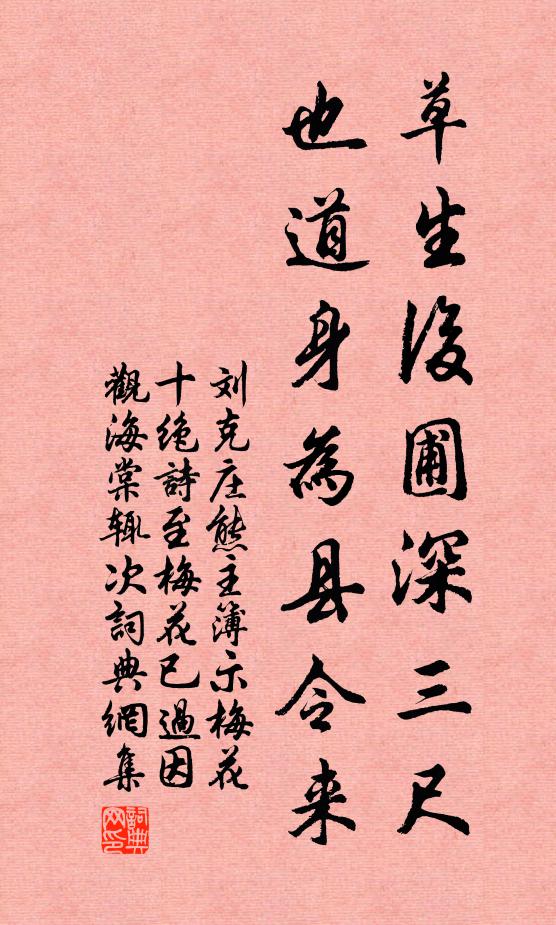 草生后圃深三尺
也道身為县令来
刘克庄熊主簿示梅花
十绝詩至梅花已過因
觀海棠辄次詞典網集
詞典网印